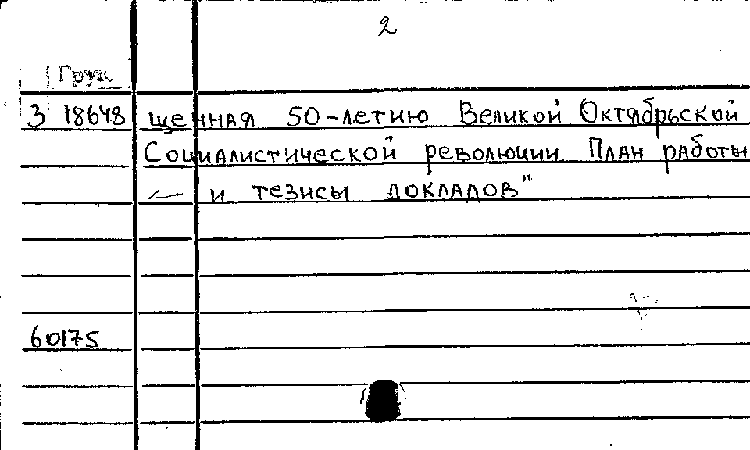 2
Груз
З 18648 щенная 50-летию Великой Октябрьской
Социалистической революции. План работы
— и тезисы докладов"
60175